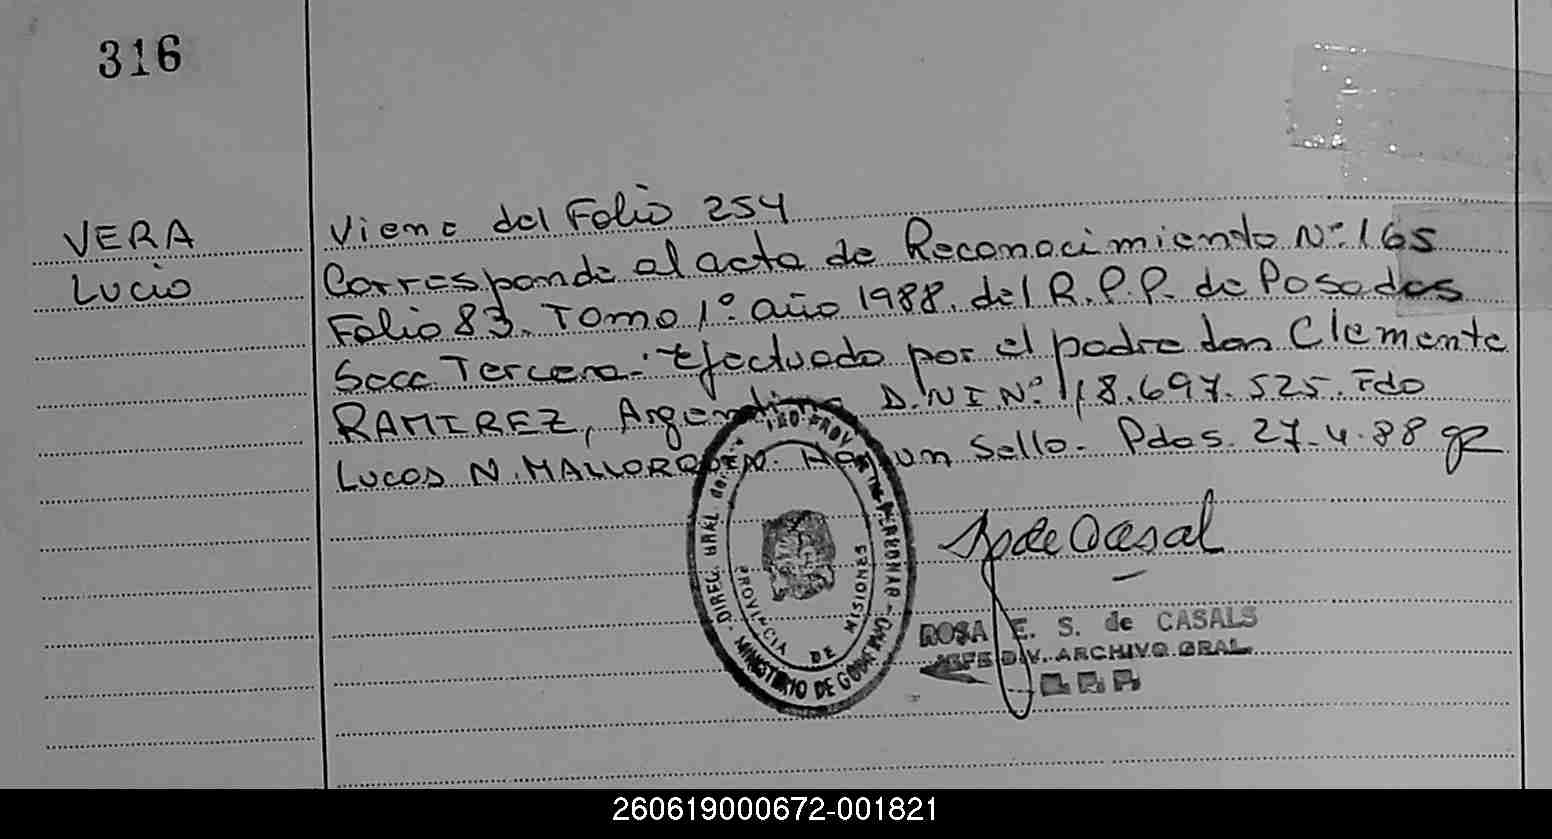 316
VERA
LUCIO
Viene del Folio 254
Corresponde al acta de Reconocimiento Nº 165
Folio 83. Tomo 1º. año 1988. del R.P.P. de Posadas
Secc Tercera. Efectuado por el padre don Clemente
RAMIREZ, Argentino D.N.I.Nº 18.697.525. Fdo
Lucas N. MALLORQUIN. Hay un Sello. Pdas. 27.4.88
DIREC. GRAL. del PROV. DE LAS PERSONAS - MINISTERIO DE GOBIERNO -
PROVINCIA DE MISIONES
ROSA E. S. de CASALS
JEFE DIV. ARCHIVO GRAL.
R.P.P.
260619000672-001821